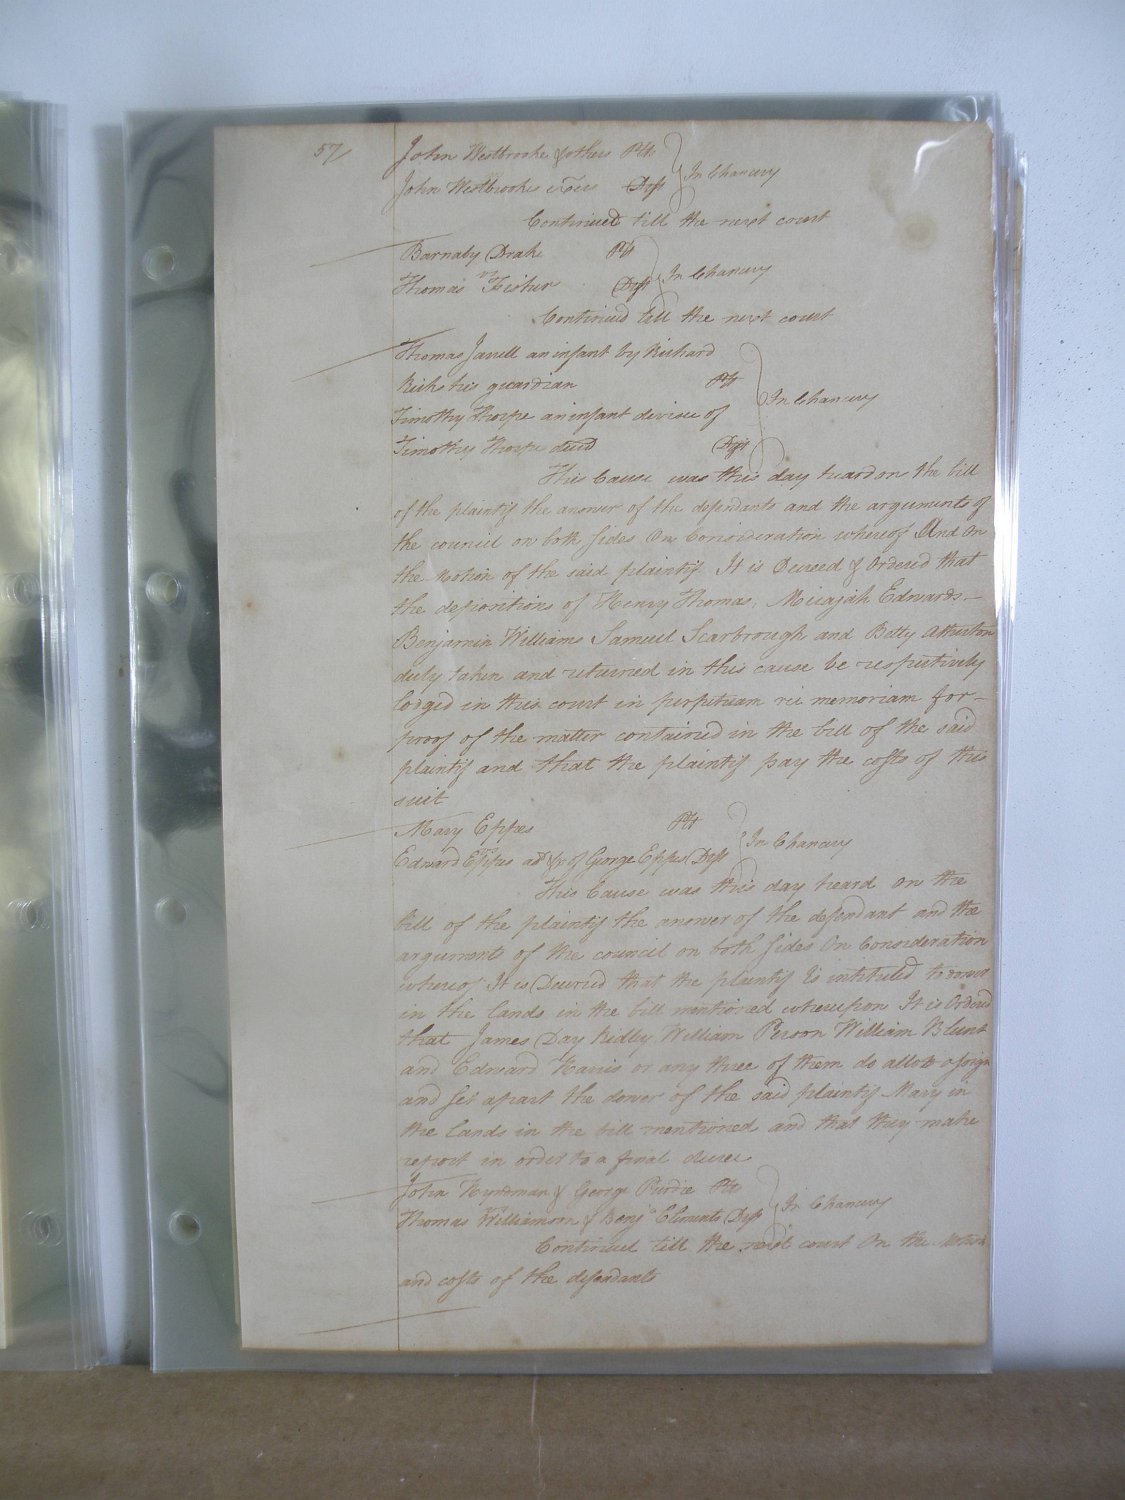 57
John Westbrooke & others Plts
John Westbrookes exors Defts } In Chancery
Continued till the next court
Barnaby Drake Plt
Thomas Fisher Deft } In Chancery
Continued till the next court
Thomas Jarrell an infant by Richard
Ricks his guardian Plt
Timothy Thorpe an infant devisee of } In Chancery
Timothy Thorpe decd Deft
This Cause was this day heard on the bill
of the plaintif the answer of the defendants and the arguments of
the council on both sides On Consideration whereof And On
the Motion of the said plaintif It is Decreed & Ordered that
the depositions of Henry Thomas, Micajah Edwards
Benjamin Williams Samuel Scarbrough and Betty Atherton
duly taken and returned in this cause be respectively
lodged in this court in perpetuam rei memoriam for
proof of the matter contained in the bill of the said
plaintif and that the plaintif pay the costs of this
suit
Mary Eppes Plt
Edward Eppes adr &c of George Eppes Deft } In Chancery
This Cause was this day heard on the
bill of the plaintif the answer of the defendant and the
arguments of the council on both sides On Consideration
whereof It is Decreed that the plaintif is intituled to dower
in the lands in the bill mentioned whereupon It is Ordered
that James Day Ridley William Person William Blunt
and Edward Harris or any three of them do allott assign
and set apart the dower of the said plaintif Mary in
the lands in the bill mentioned and that they make
report in order to a final decree
John Hyndman & George Purdie Plts
Thomas Williamson & Benja Clements Defts } In Chancery
Continued till the next court On the Motion
and costs of the defendants